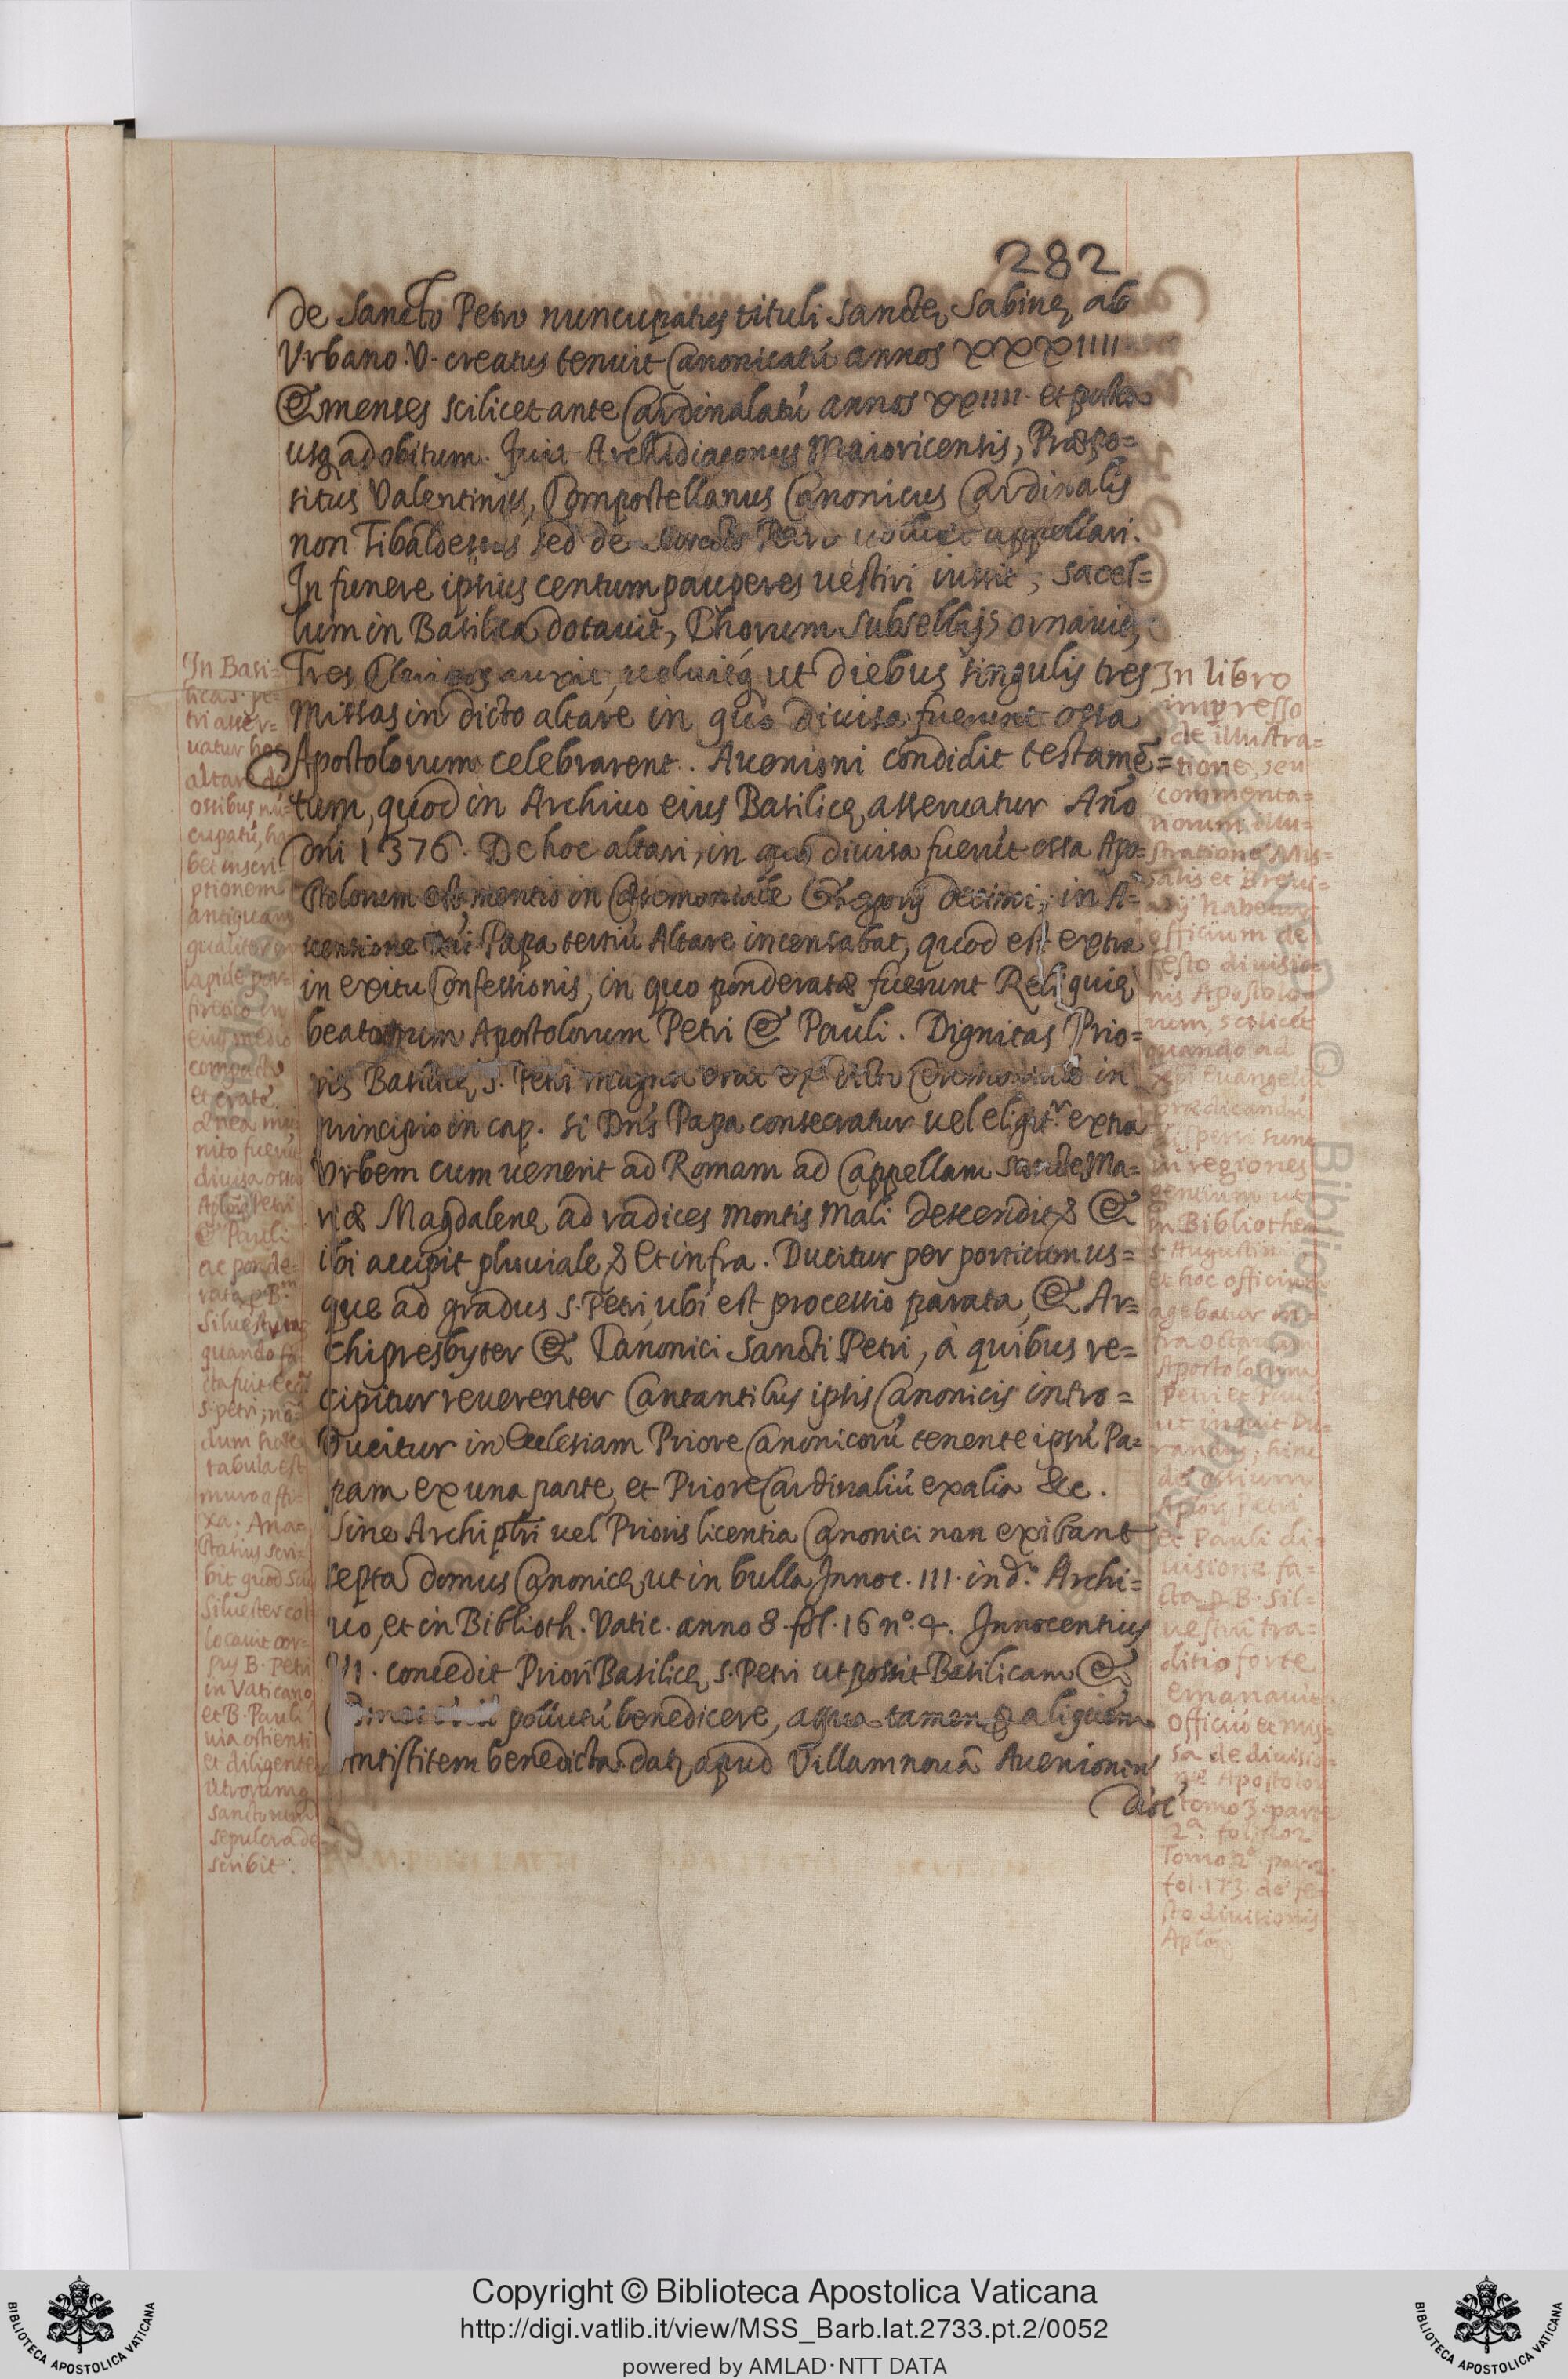 282
de Sancto Petro nuncupatus tituli Sanctę Sabinę, ab
Vrbano V. creatus tenuit Canonicatú annos XXXIIII
& menses scilicet ante Cardinalatú annos XXIIII. et postea
usq ad obitum. Fuit Archidiaconus Maioricensis, Præpo=
situs Valentinus, Compostellanus Canonicus Cardinalis
non Tibaldescus sed de Sancto Petro uoluit appellari.
In funere ipsius centum pauperes uestiri iussit, sacel=
lum in Basilica dotauit, Chorum subsellijs ornauit,
Tres Clericos auxit, uoluitq ut diebus singulis tres
Missas in dicto altare in quo diuisa fuerunt ossa
Apostolorum celebrarent. Auenioni condidit testamē=
tum, quod in Archiuo eius Basilicę asseruatur Año
Dni 1376. De hoc altari, in quo diuisa fuerút ossa Apo=
stolorum est mentio in Cæremoniale Gregorij decimi, in A=
scensione Papa tertiú Altare incensabat, quod est extra
in exitu Confessionis, in quo ponderatæ fuerunt Reliquię
beatorum Apostolorum Petri & Pauli. Dignitas Prio=
ris Basilicę S. Petri magna erat ex dicto Cæremoniale in
principio in cap. Si Dns Papa consecratur uel eligit.r extra
Vrbem cum uenerit ad Romam ad Cappellam sanctę Ma=
riæ Magdalenę ad radices montis Mali descendit, &
ibi accipit pluuiale, & Et infra. Ducitur per porticum us=
que ad gradus S. Petri, ubi est processio parata, & Ar=
chipresbyter & Canonici Sancti Petri, à quibus re=
cipitur reuerenter Cantantibus ipsis Canonicis intro=
ducitur in Ecclesiam Priore Canonicorú tenente ipsú Pa=
pam ex una parte, et Priore Cardinaliú ex alia &c.
Sine Archipbri uel Prioris licentia Canonici non exibant
septa domus Canonicę, ut in bulla Innoc. III. in d.o Archi=
uo, et in Biblioth. Vatic. anno 8. fol. 16 n.o 4. Innocentius
VI. concedit Priori Basilicę S. Petri ut possit Basilicam &
pollutú benedicere, aqua tamen p aliquem
Antistitem benedicta. dat. apud Villamnouā Auenionen
dioc
In Basi=
lica S. Pe=
tri asser=
uatur hoc
altare de
ossibus nú=
cupatú, ha
bet inscri=
ptionem
antiquam
lapide por=
eius medio
compacto
et crate
ænea mu
nito fuerút
diuisa ossa
Aplorꝝ Petri
& Pauli
ac ponde=
rata p B.m
Siluestrum
quando fa
cta fuit eccl
S. Petri, nō
dum hæc
tabula est
muro affi=
xa. Ana=
stasius scri=
bit quod San
Siluester col
locauit cor=
pus B. Petri
in Vaticano
et B. Pauli
uia ostiensi
et diligenter
utrorumq
sanctorum
sepulcra de=
scribit.
In libro
impresso
de illustra=
tione, seu
commenta=
riorum illu=
stratione Mis=
salis et Breui=
arij habetur
officium de
festo diuisio=
nis Apostolo=
rum, scilicet
quando ad
xpi euangeliú
prædicandú
dispersi sunt
in regiones
gentium ut
in Bibliotheca
S. Augustini
et hoc officium
agebatur in=
fra octauam
Apostolorum
Petri et Pauli
ut inquit Du=
randus; hinc
de ossium
Aplorꝝ Petri
et Pauli di=
uisione fa=
cta p B. Sil=
uestrú tra=
ditio forte
emanauit
Officiú et mis=
sa de diuisio=
ne Apostolor
tomo 3. parte
2.a fol. 202
Tomo 2.o par. 2.
fol. 173. de fe=
sto diuisionis
Aplorꝝ
Copyright © Biblioteca Apostolica Vaticana
http://digi.vatlib.it/view/MSS_Barb.lat.2733.pt.2/0052
powered by AMLAD·NTT DATA
BIBLIOTECA APOSTOLICA VATICANA
BIBLIOTECA APOSTOLICA VATICANA